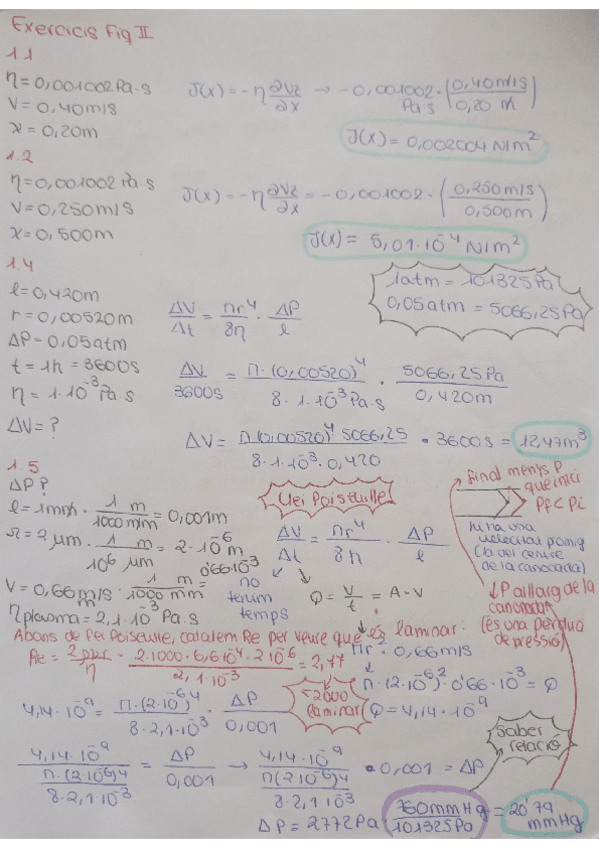 Exercicis Fig II
1.1
η=0,001002Pa·s
v=0,40m/s
x=0,20m
J(x)=-η ∂Vz/∂x → -0,001002 Pa·s · (0,40m/s / 0,20 m)
J(x)=0,002004 N/m²
1.2
η=0,001002 Pa·s
v=0,250m/s
x=0,500m
J(x)=-η ∂Vz/∂x = -0,001002 · (0,250m/s / 0,500m)
J(x)= 5,01·10⁻⁴ N/m²
1.4
l=0,420m
r=0,00520m
ΔP=0,05atm
t=1h=3600s
η=1·10⁻³ Pa·s
ΔV=?
1atm=101325Pa
0,05atm=5066,25Pa
ΔV/Δt = πr⁴/8η · ΔP/l
ΔV/3600s = π·(0,00520)⁴ / 8·1·10⁻³Pa·s · 5066,25Pa / 0,420m
ΔV= π·(0,00520)⁴ 5066,25 / 8·1·10⁻³·0,420 · 3600s = 1247m³
1.5
ΔP?
l=1mm · 1 m / 1000mm = 0,001m
r=2μm · 1 m / 10⁶ μm = 2·10⁻⁶m
v=0,66 mm/s · 1 m / 1000 mm = 0'66·10⁻³
η plasma=2,1·10⁻³ Pa·s
Llei Poiseuille
ΔV/Δt = πr⁴/8η · ΔP/l
no tenim temps
Q = V/t = A·v
final menys P que inici
Pf<Pi
hi ha una velocitat promig (la del centre de la canonada)
↓P al llarg de la canonada (és una pèrdua de pressió)
Abans de fer Poiseuille, calculem Re per veure que és laminar:
Re= 2ρvr/η · 2·1000·6,6·10⁻⁴·2·10⁻⁶ / 2,1·10⁻³ = 2,77
<2000 laminar
πr²·0,66m/s
π·(2·10⁻⁶)²·0'66·10⁻³=Q
Q=4,14·10⁻⁹
4,14·10⁻⁹= π·(2·10⁻⁶)⁴ / 8·2,1·10⁻³ · ΔP / 0,001
4,14·10⁻⁹ / (π·(2·10⁻⁶)⁴ / 8·2,1·10⁻³) = ΔP / 0,001 → 4,14·10⁻⁹ / (π(2·10⁻⁶)⁴ / 8·2,1·10⁻³) · 0,001 = ΔP
Saber relació
ΔP=2772Pa · 760mmHg / 101325Pa = 20'79 mmHg